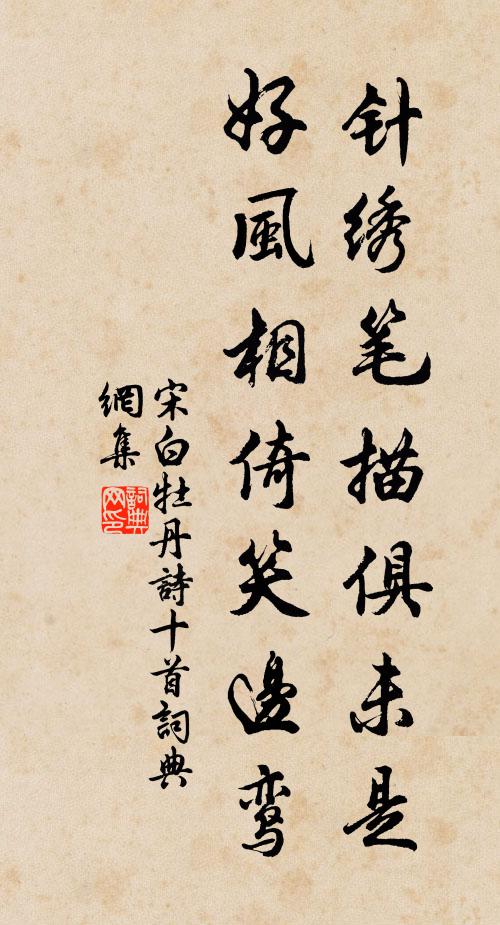 针绣笔描俱未是
好風相倚笑邊鸾
宋白牡丹詩十首詞典
網集
詞典
网印